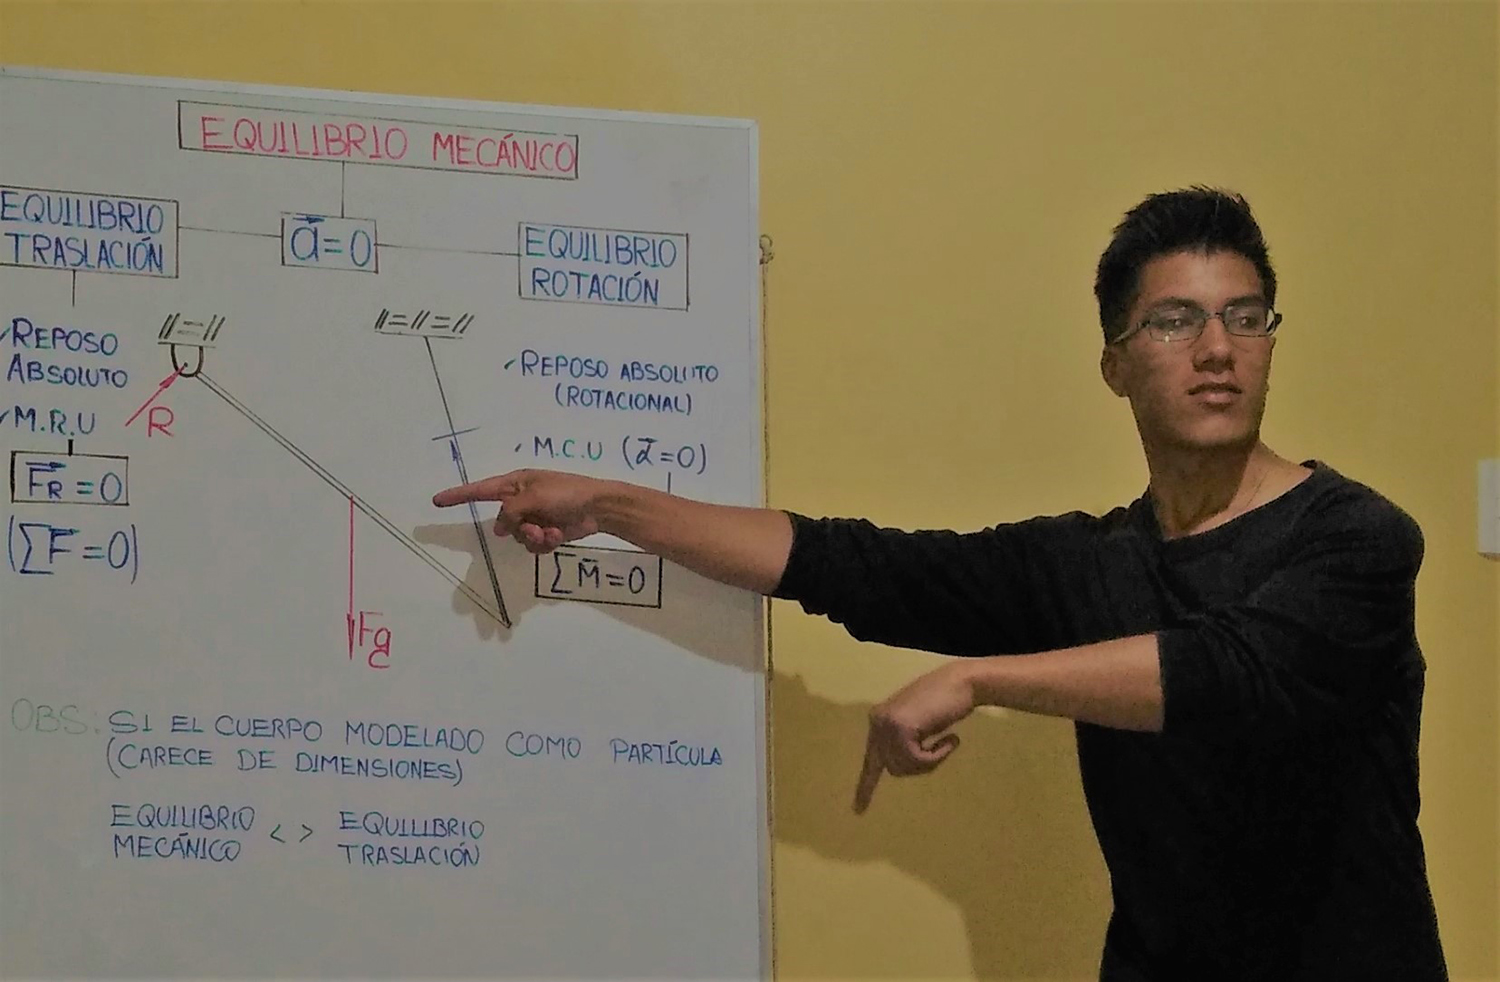 EQUILIBRIO MECÁNICO
EQUILIBRIO
TRASLACIÓN
a⃗=0
EQUILIBRIO
ROTACIÓN
REPOSO
ABSOLUTO
M.R.U
F⃗R=0
(∑F⃗=0)
R
Fg
REPOSO ABSOLUTO
(ROTACIONAL)
M.C.U (α⃗=0)
∑M̄=0
OBS: SI EL CUERPO MODELADO COMO PARTÍCULA
(CARECE DE DIMENSIONES)
EQUILIBRIO < > EQUILIBRIO
MECÁNICO TRASLACIÓN